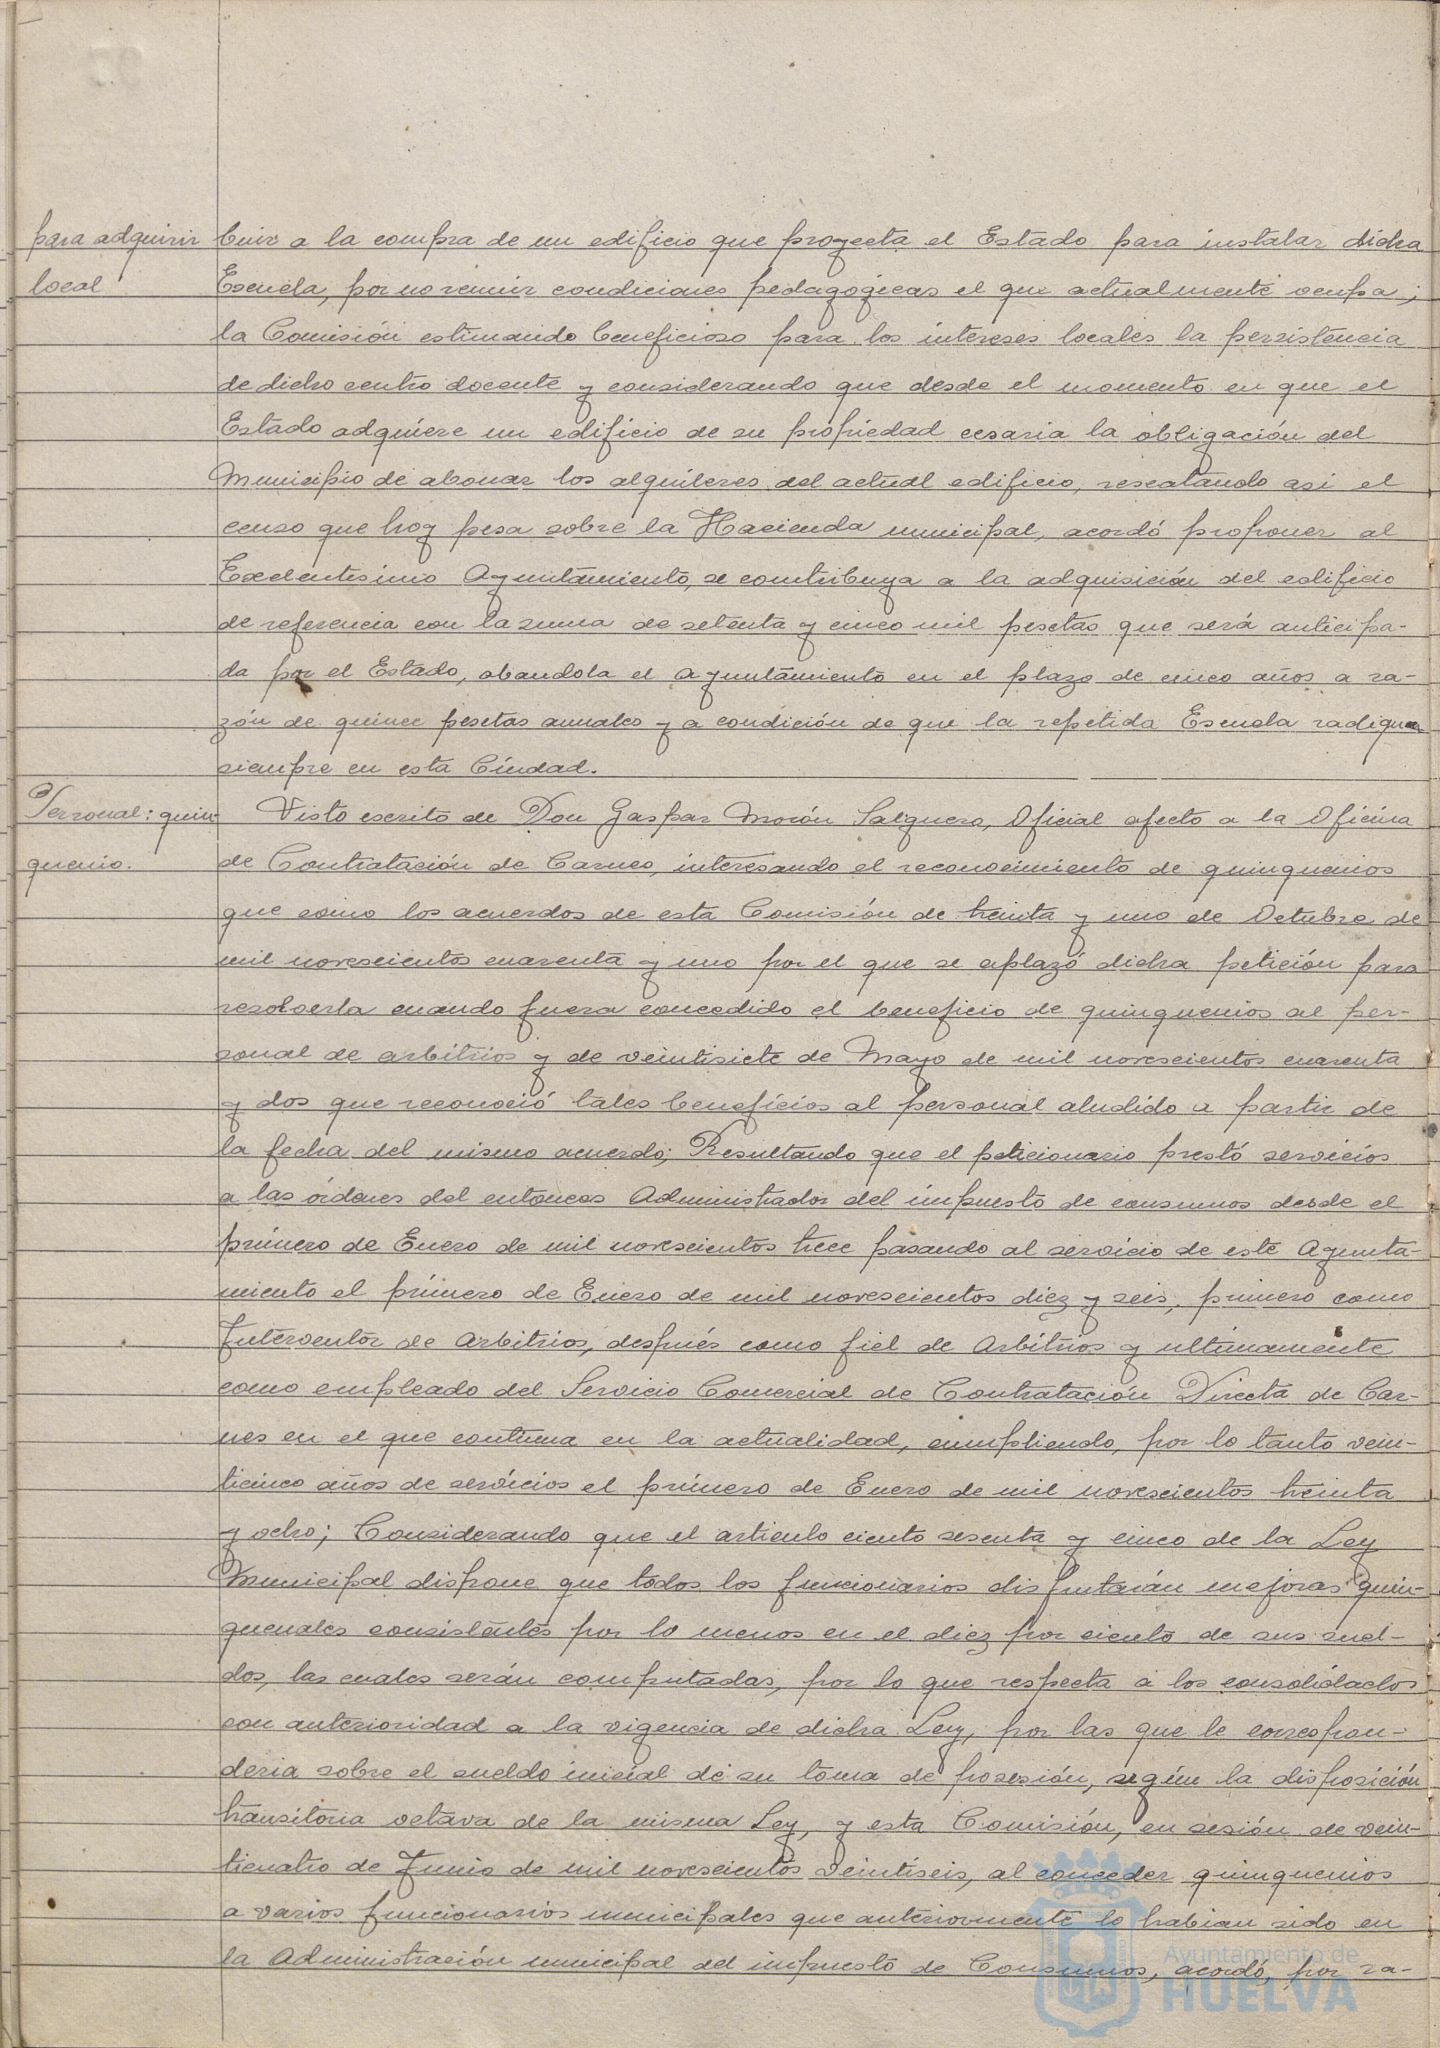 para adquirir
local
buir a la compra de un edificio que proyecta el Estado para instalar dicha
Escuela, por no reunir condiciones pedagógicas el que actualmente ocupa;
la Comisión estimando beneficioso para los intereses locales la persistencia
de dicho centro docente y considerando que desde el momento en que el
Estado adquiere un edificio de su propiedad cesaria la obligación del
Municipio de abonar los alquileres del actual edificio, rescatando asi el
censo que hoy pesa sobre la Hacienda municipal, acordó proponer al
Exelentisimo Ayuntamiento, se contribuya a la adquisición del edificio
de referencia con la suma de setenta y cinco mil pesetas que será anticipa-
da por el Estado, abandola el Ayuntamiento en el plazo de cinco años a ra-
zón de quince pesetas anuales y a condición de que la repetida Escuela radique
siempre en esta Ciudad.
Personal: quin-
quenio.
Visto escrito de Don Gaspar Morón Salguero, Oficial afecto a la Oficina
de Contratación de Carnes, interesando el reconocimiento de quinquenios
que como los acuerdos de esta Comisión de treinta y uno de Octubre de
mil novescientos cuarenta y uno por el que se aplazó dicha petición para
resolverla cuando fuera concedido el beneficio de quinquenios al per-
sonal de arbitrios y de veintisiete de Mayo de mil novescientos cuarenta
y dos que reconoció tales beneficios al personal aludido a partir de
la fecha del mismo acuerdo; Resultando que el peticionario prestó servicios
a las órdenes del entonces Administrador del impuesto de consumos desde el
primero de Enero de mil novescientos trece pasando al servicio de este Ayunta-
miento el primero de Enero de mil novescientos diez y seis, primero como
Interventor de Arbitrios, después como fiel de Arbitrios y ultimamente
como empleado del Servicio Comercial de Contratación Directa de Car-
nes en el que continua en la actualidad, cumpliendo, por lo tanto vein-
ticinco años de servicios el primero de Enero de mil novescientos treinta
y ocho; Considerando que el articulo ciento sesenta y cinco de la Ley
Municipal dispone que todos los funcionarios disfrutarán mejoras quin-
quenales consistentes por lo menos en el diez por ciento de sus suel-
dos, las cuales serán computadas, por lo que respecta a los consolidados
con anterioridad a la vigencia de dicha Ley, por las que le correspon-
deria sobre el sueldo inicial de su toma de posesión, según la disposición
transitoria octava de la misma Ley, y esta Comisión, en sesión de vein-
ticuatro de Junio de mil novescientos veintiseis, al conceder quinquenios
a varios funcionarios municipales que anteriormente lo habian sido en
la Administración municipal del impuesto de Consumos, acordó, por ra-
Ayuntamiento de
HUELVA